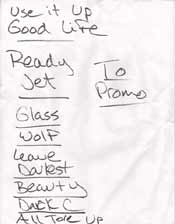 Use it Up
Good Life
Ready
Jet
To
Promo
Glass
Wolf
Leave
Darkest
Beauty
Dark C
All Tore Up